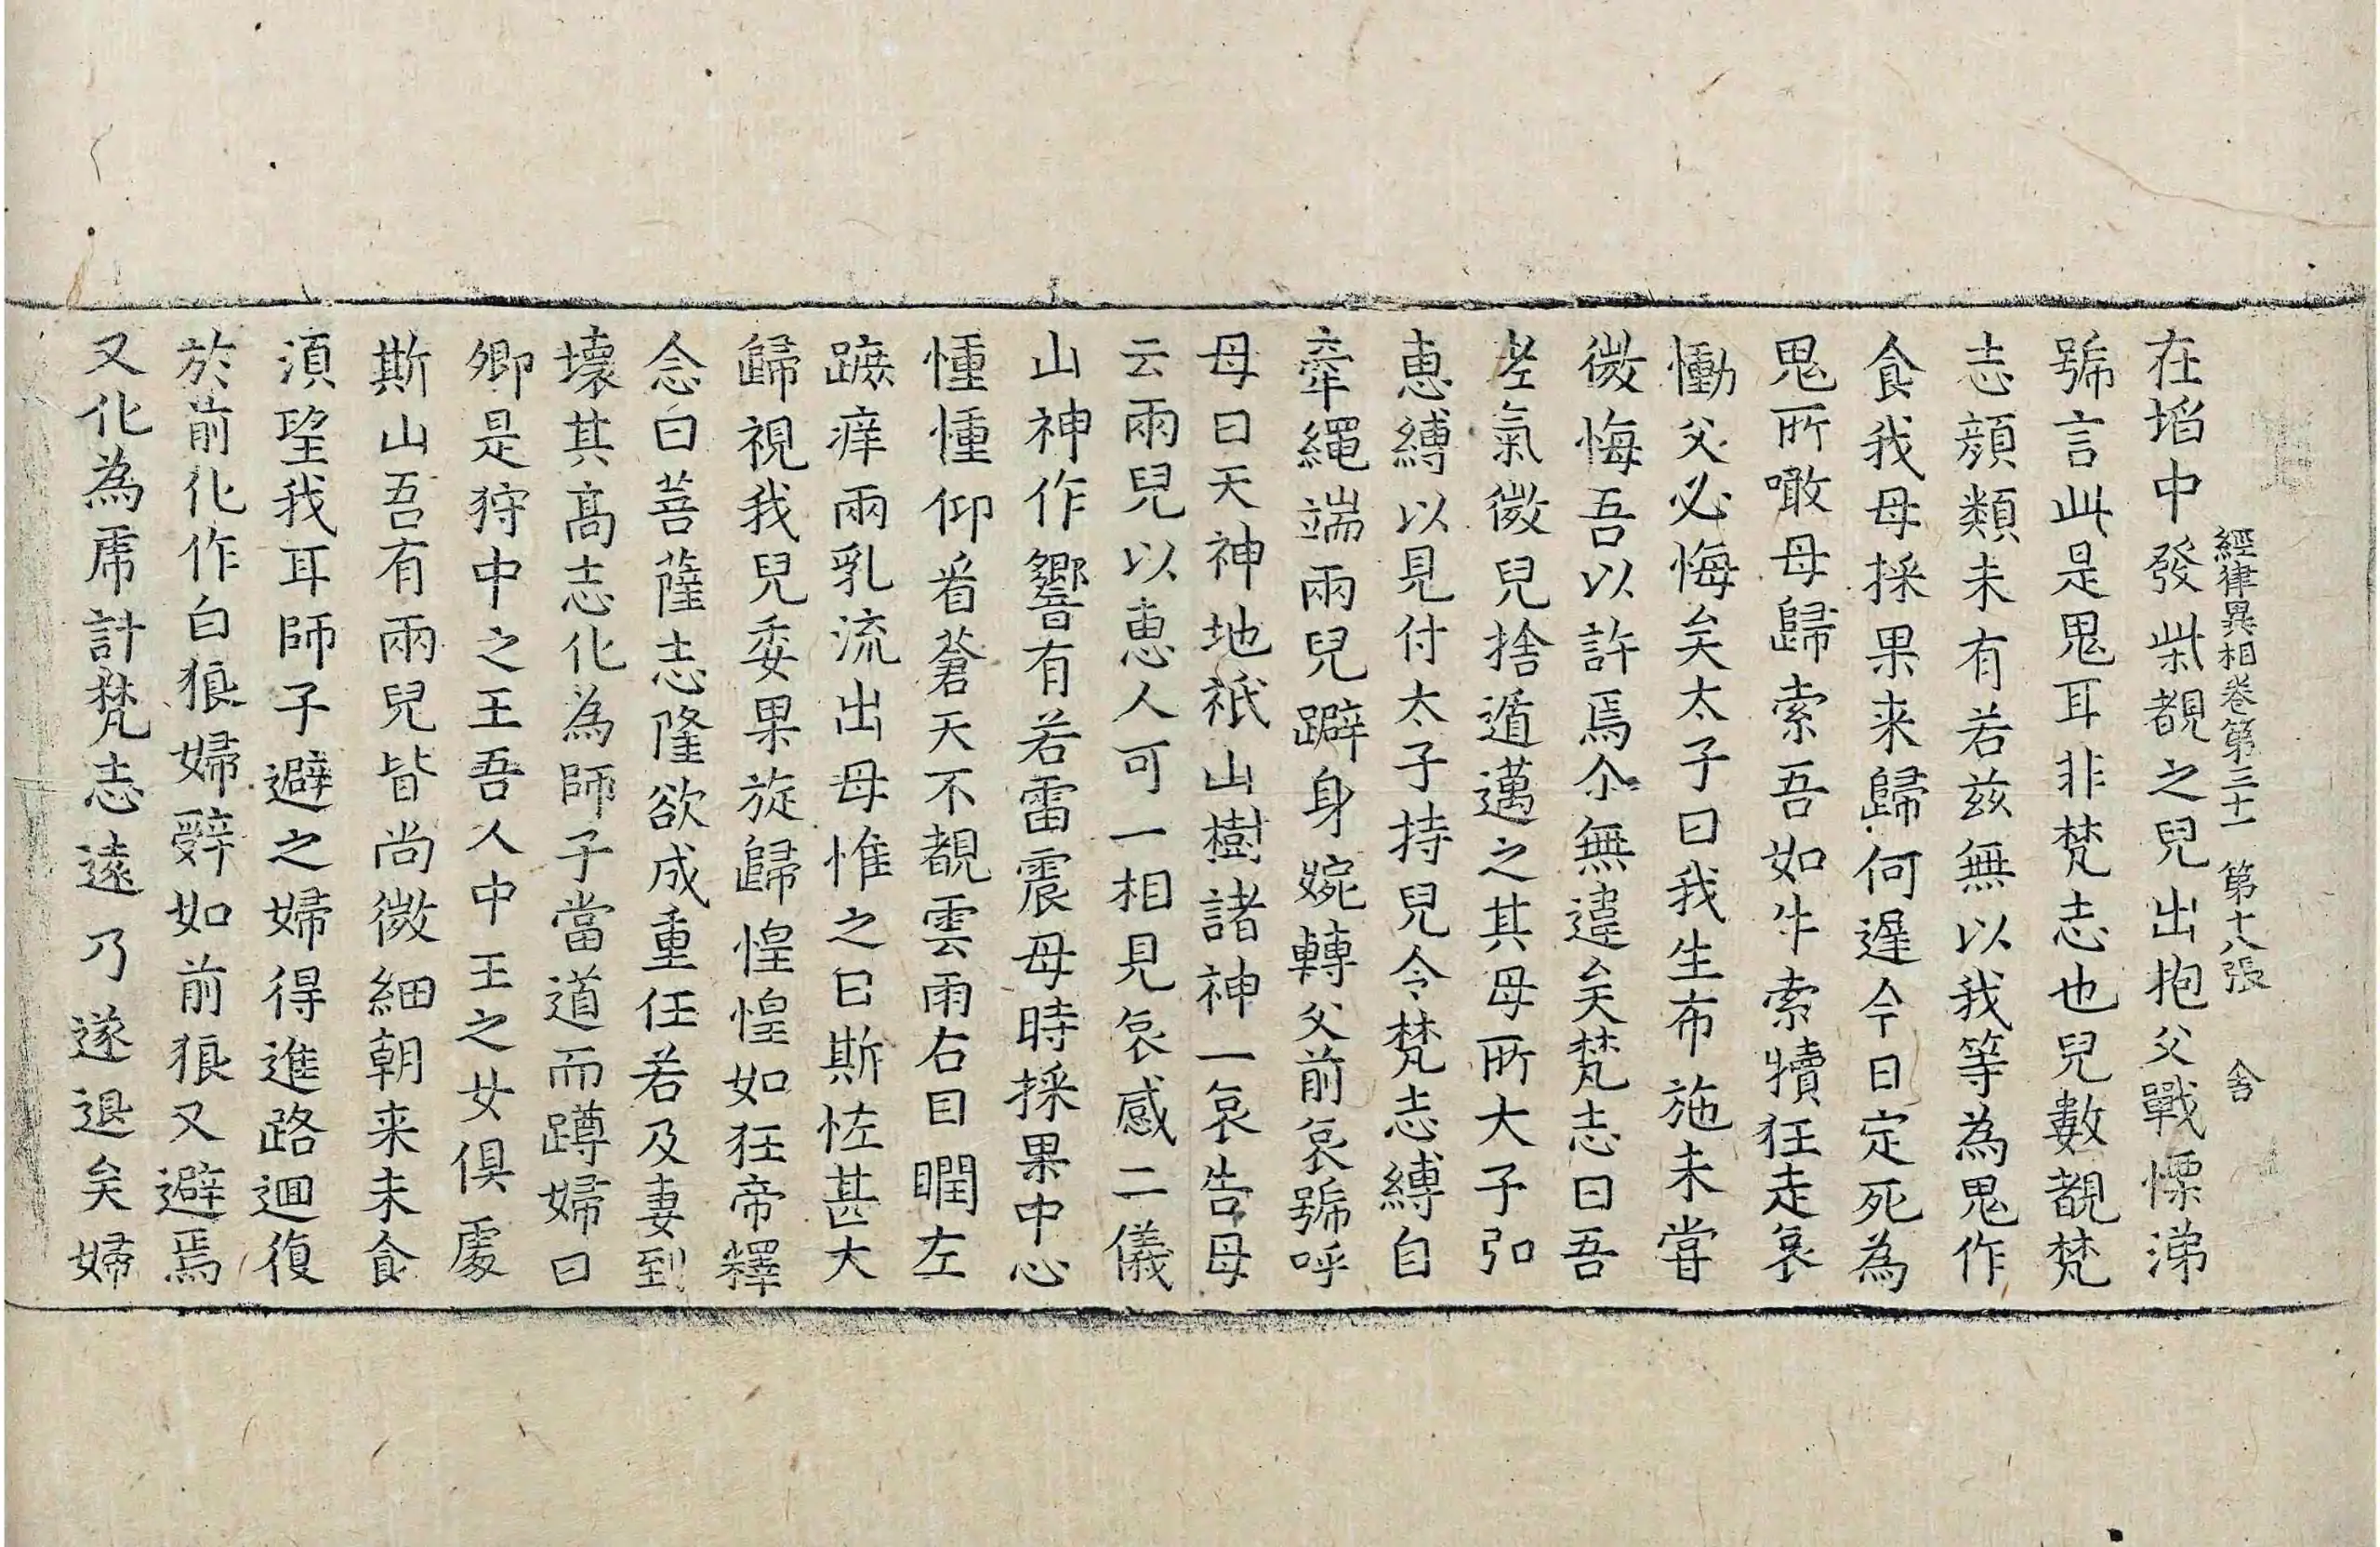 經律異相卷第三十一 第十八張 舍
在埳中發柴覩之兒出抱父戰慄涕
號言此是鬼耳非梵志也兒數覩梵
志顔類未有若兹無以我等為鬼作
食我母採果来歸何遲今日定死為
鬼所噉母歸索吾如牛索犢狂走哀
慟父必悔矣太子曰我生布施未甞
微悔吾以許焉尒無違矣梵志曰吾
老氣微兒捨遁邁之其母所大子弘
惠縛以見付太子持兒令梵志縛自
牽繩端兩兒躃身婉轉父前哀號呼
母曰天神地祇山樹諸神一哀告母
云兩兒以惠人可一相見哀感二儀
山神作響有若雷震母時採果中心
憧憧仰看蒼天不覩雲雨右目瞤左
蹠痒兩乳流出母惟之曰斯恠甚大
歸視我兒委果旋歸惶惶如狂帝釋
念曰菩薩志隆欲成重任若及妻到
壞其髙志化為師子當道而蹲婦曰
卿是狩中之王吾人中王之女俱處
斯山吾有兩兒皆尚微細朝来未食
湏望我耳師子避之婦得進路迴復
於前化作白狼婦辤如前狼又避焉
又化為虎計梵志遠乃遂退矣婦